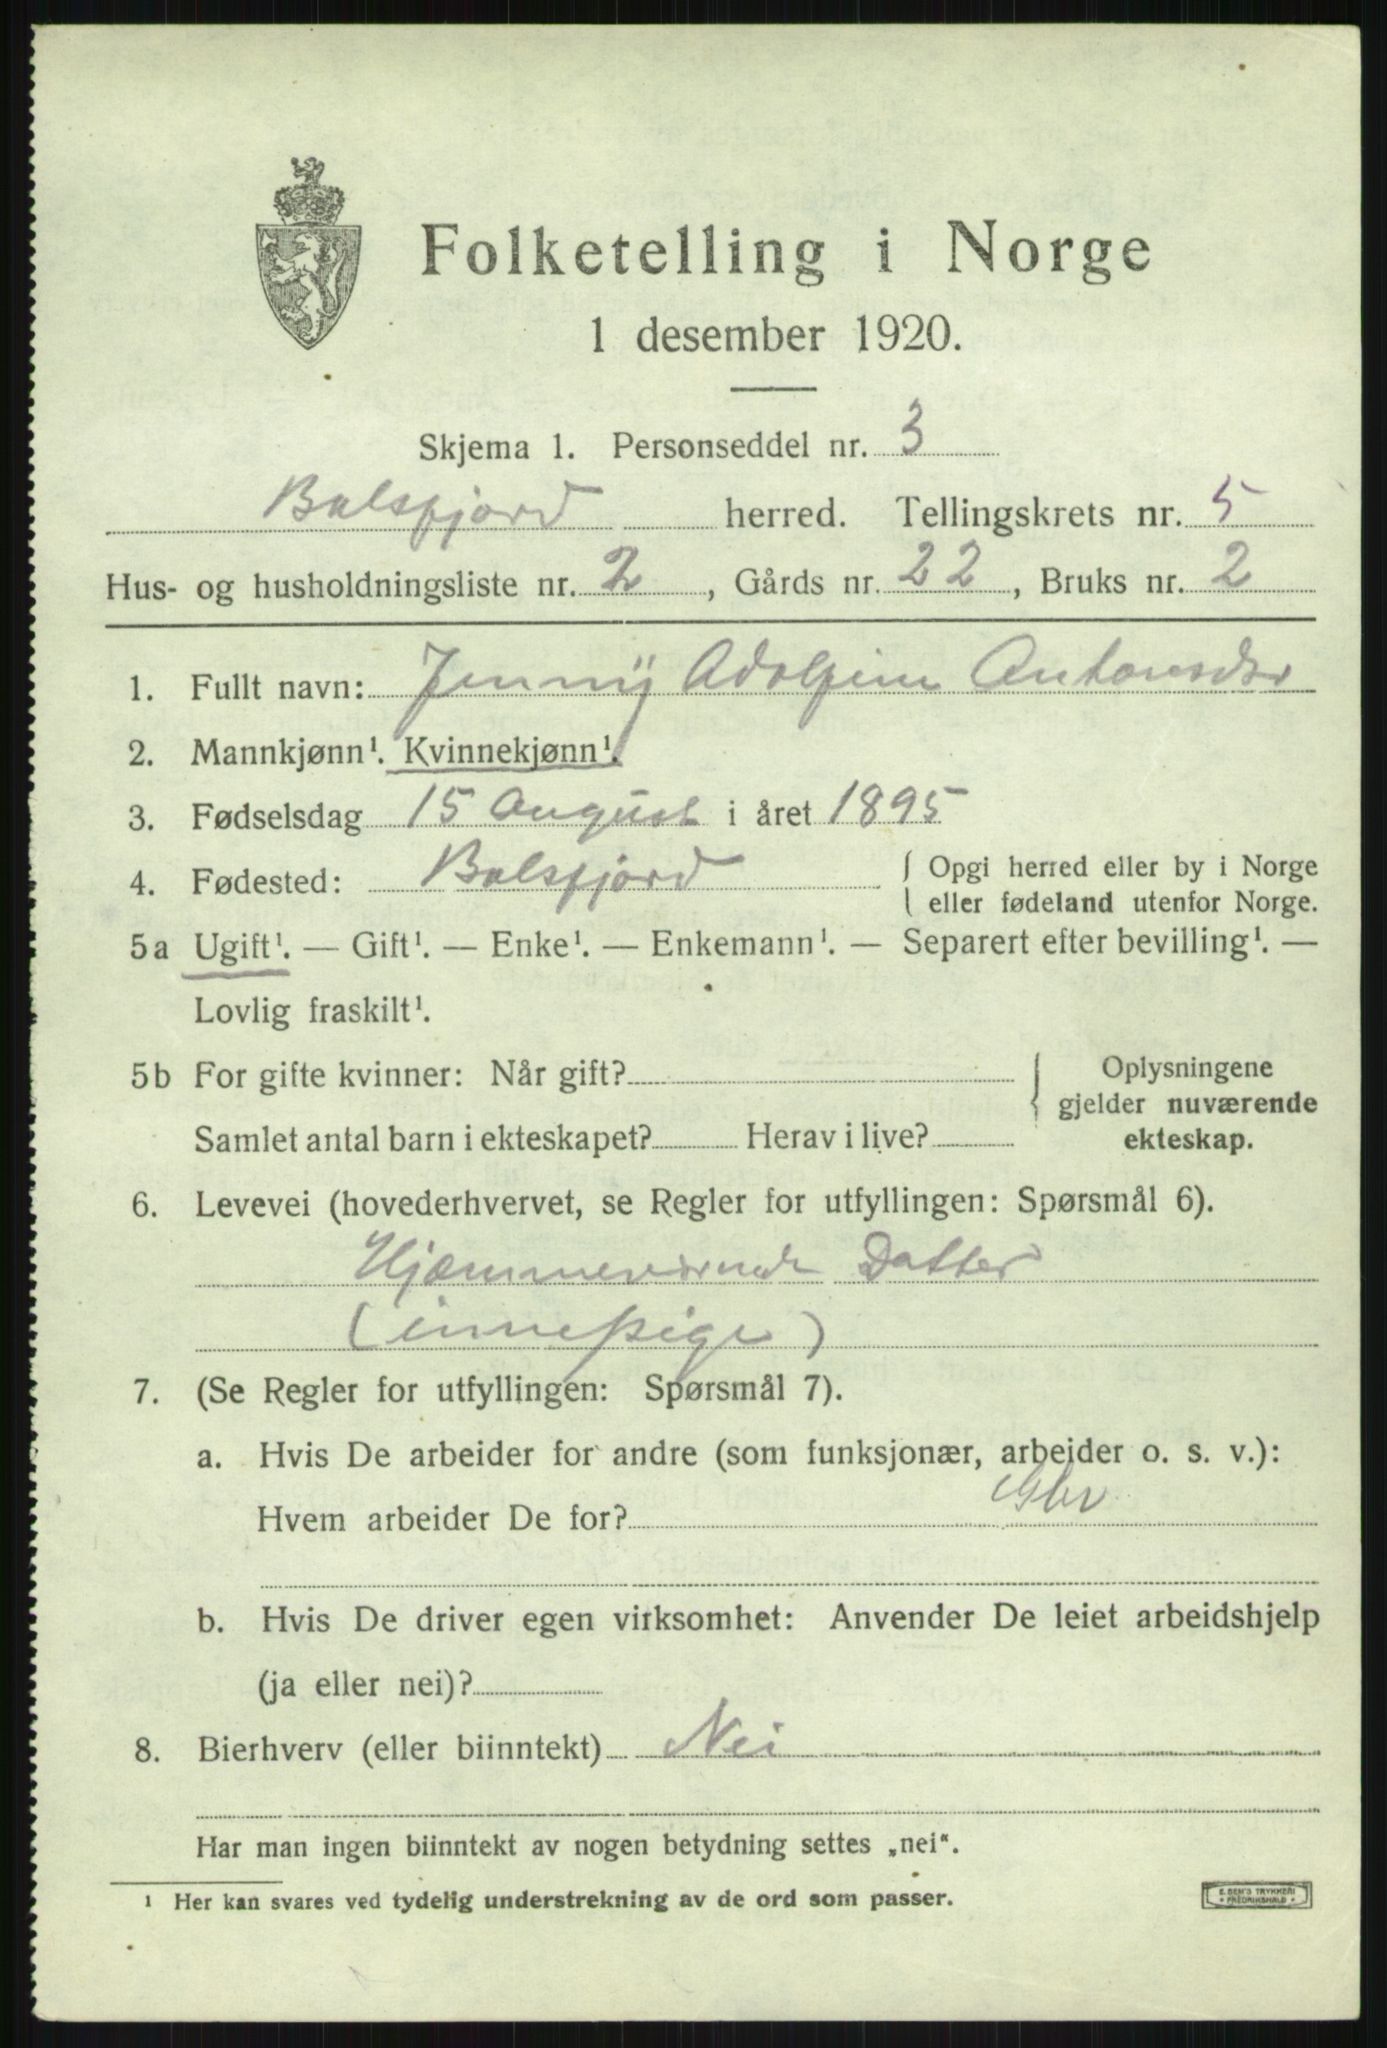 Folketelling i Norge
1 desember 1920.
Skjema 1. Personseddel nr. 3
Balsfjord herred. Tellingskrets nr. 5
Hus- og husholdningsliste nr. 2, Gårds nr. 22, Bruks nr. 2
1. Fullt navn: Jenny Adolfine Antonsdtr
2. Mannkjønn¹. Kvinnekjønn¹.
3. Fødselsdag 15 August i året 1895
4. Fødested: Balsfjord { Opgi herred eller by i Norge
eller fødeland utenfor Norge.
5a Ugift¹. — Gift¹. — Enke¹. — Enkemann¹. — Separert efter bevilling¹. —
Lovlig fraskilt¹.
5b For gifte kvinner: Når gift? { Oplysningene
gjelder nuværende
Samlet antal barn i ekteskapet? Herav i live? ekteskap.
6. Levevei (hovederhvervet, se Regler for utfyllingen: Spørsmål 6).
Hjæmmeværende Datter
(innepige)
7. (Se Regler for utfyllingen: Spørsmål 7).
a. Hvis De arbeider for andre (som funksjonær, arbeider o. s. v.):
Hvem arbeider De for? Gbr
b. Hvis De driver egen virksomhet: Anvender De leiet arbeidshjelp
(ja eller nei)?
8. Bierhverv (eller biinntekt) Nei
Har man ingen biinntekt av nogen betydning settes „nei“.
¹ Her kan svares ved tydelig understrekning av de ord som passer.
E. SEM'S TRYKKERI
• FREDRIKSHALD •